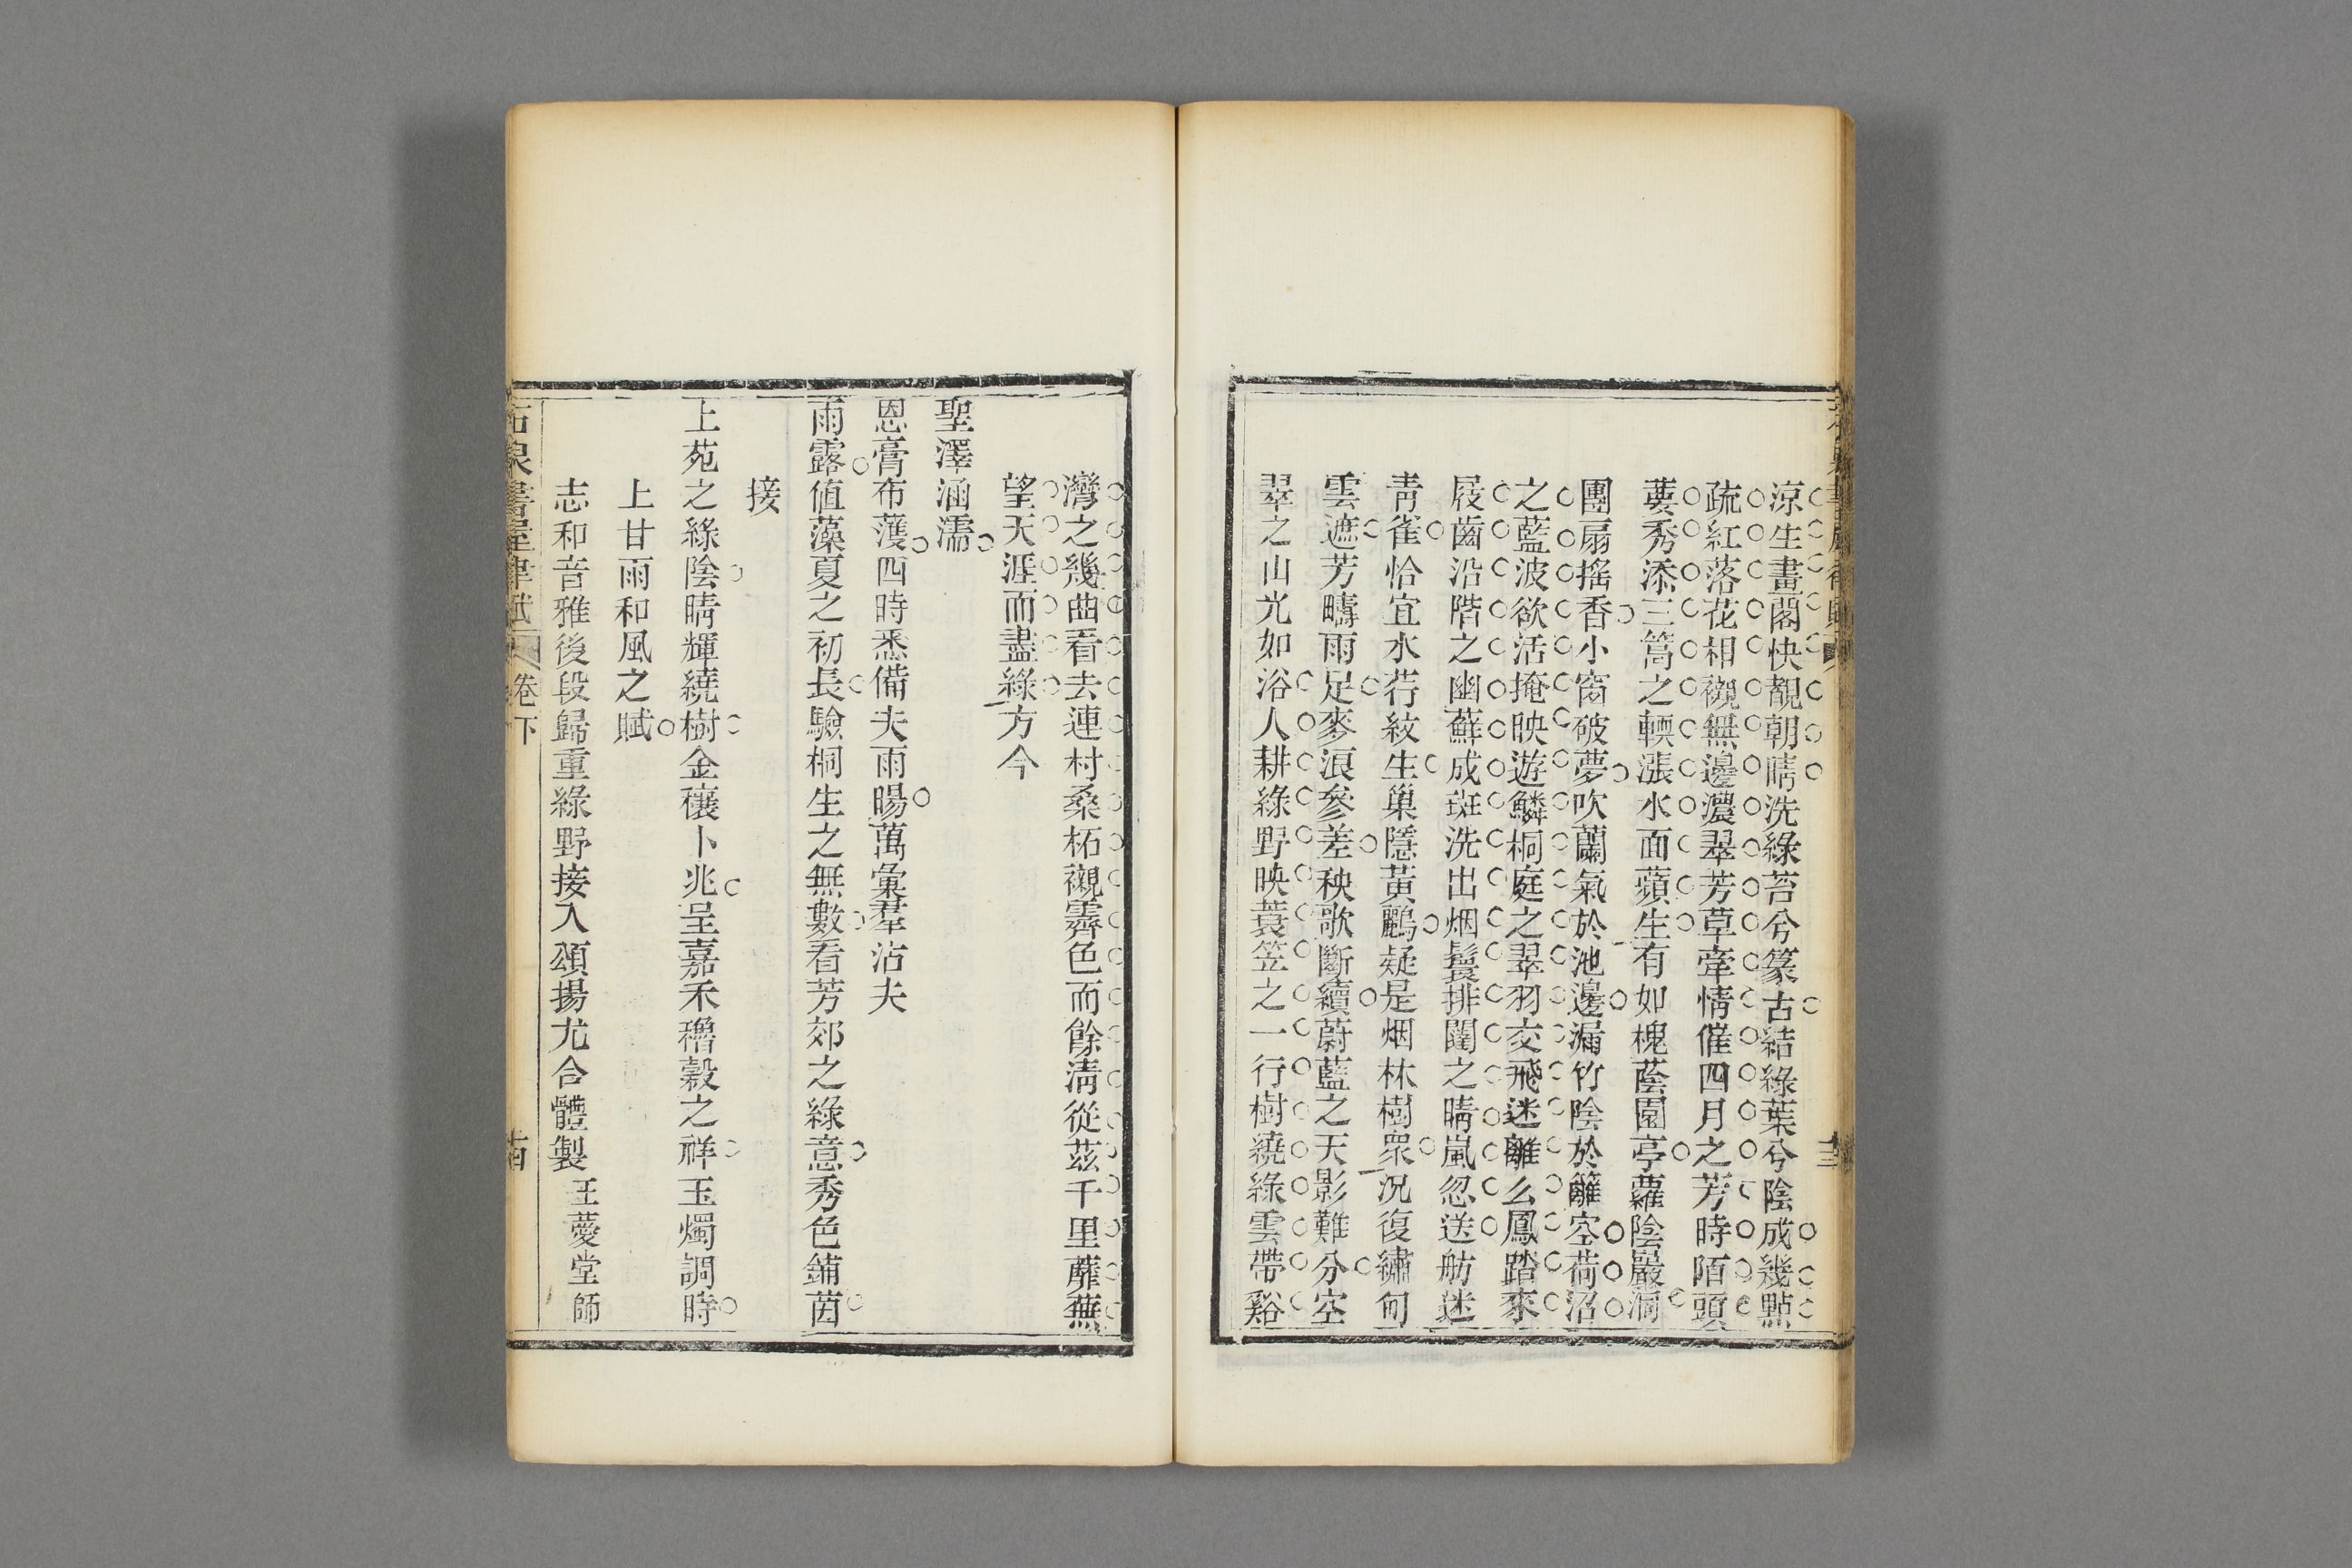 涼生畫閣快覩朝晴洗綠苔兮篆古結綠葉兮陰成幾點
疏紅落花相襯無邊濃翠芳草牽情催四月之芳時陌頭
葽秀添三篙之輭漲水面蘋生有如槐蔭園亭蘿陰巖洞
團扇搖香小窗破夢吹蘭氣於池邊漏竹陰於籬空荷沼
之藍波欲活掩映遊鱗桐庭之翠羽交飛迷離么鳳踏來
屐齒沿階之幽蘚成斑洗出烟鬟排闥之晴嵐忽送舫迷
青雀恰宜水荇紋生巢隱黃鸝疑是烟林樹衆況復繡甸
雲遮芳疇雨足麥浪參差秧歌斷續蔚藍之天影難分空
翠之山光如浴人耕綠野映蓑笠之一行樹繞綠雲帶谿
灣之幾曲看去連村桑柘襯霽色而餘淸從茲千里蘼蕪
望天涯而盡綠方今
聖澤涵濡
恩膏布濩四時悉備夫雨暘萬彙羣沾夫
雨露値藻夏之初長驗桐生之無數看芳郊之綠意秀色鋪茵
接
上苑之綠陰晴輝繞樹金穰卜兆呈嘉禾穭穀之祥玉燭調時
上甘雨和風之賦
志和音雅後段歸重綠野接入頌揚尤合體製 王薆堂師
石泉書屋律賦 卷下